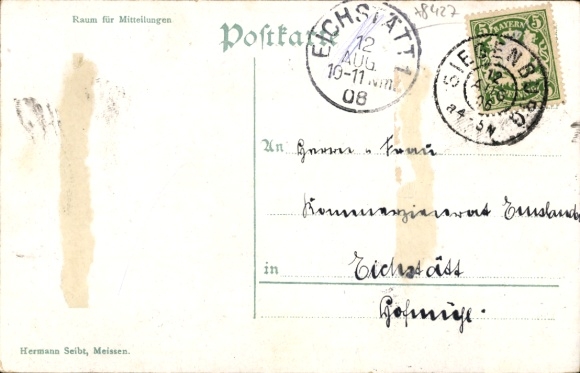 Raum für Mitteilungen
Postkarte
78427
EICHSTÄTT 1.
12
AUG.
10-11 Nm.
08
5 BAYERN 5
12
An Herrn u Frau
Kommerzienrat
in Eichstätt
Hofmühl.
Hermann Seibt, Meissen.